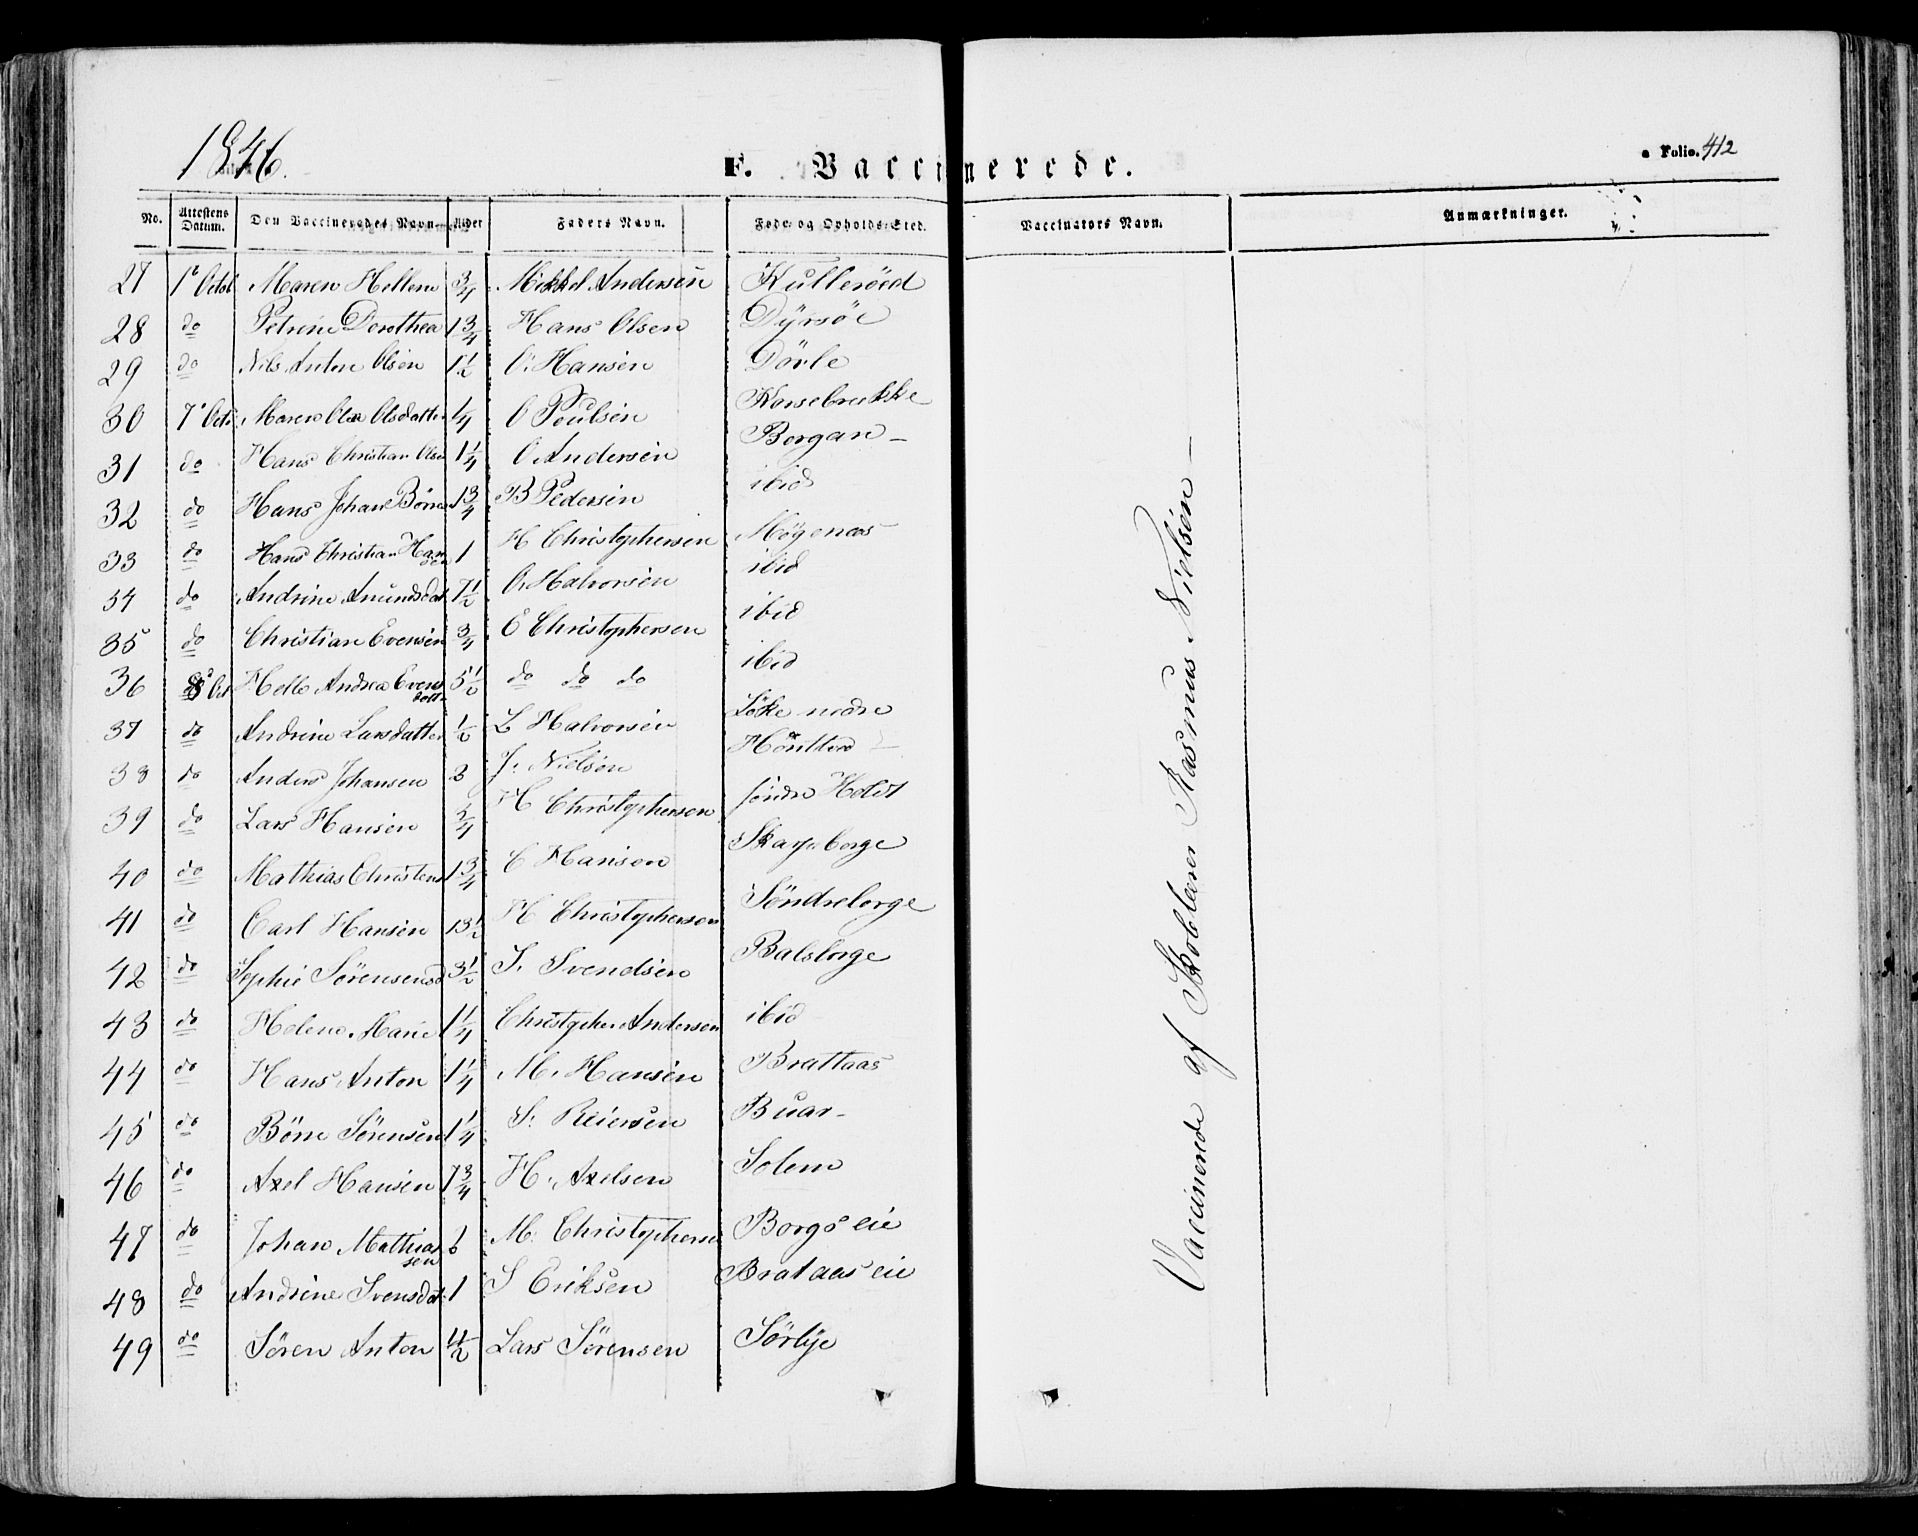 1846.
F. Vaccinerede.
Folio. 412
No. Attestens Datum. Den Vaccineredes Navn. Alder Faders Navn. Føde- og Opholds-Sted. Vaccinators Navn. Anmærkninger.
27 1e Octob Maren Hellene 3/4 Mikkel Andersen Kulleröed
28 do Petrine Dorothea 1 3/4 Hans Olsen Dyrsøe
29 do Nils Anton Olsen 1 1/2 O. Hansen Dörle
30 7e Octr Maren Olea Olsdatter 1/4 O Poulsen Korsebrekke
31 do Hans Christian Olsen 1 1/4 O Andersen Bergan
32 do Hans Johan Börre 1 3/4 B Pedersen ibid
33 do Hans Christian Hansen 1 H Christophersen Högenæs
34 do Andrine Amundsdat 7 1/2 A. Halvorsen ibid
35 do Christian Evensen 3/4 E Christophersen ibid
36 8 Oct Helle Andrea Evens datt 5 1/2 do do do ibid
37 do Andrine Larsdatter 1/2 L Halvorsen Löke nedre
38 do Anders Johansen 3 J. Nielsen
39 do Lars Hansen 3/4 H Christophersen söndre Holdt
40 do Mathias Christens 1 3/4 C Hansen Skarpeborge
41 do Carl Hansen 13 1/2 H Christophersen Söndreborge
42 do Sophie Sörensensd 3 1/2 S. Svendsen Balsborge
43 do Helene Marie 1 1/4 Christopher Andersen ibid
44 do Hans Anton 1 1/4 M. Hansen Brattaas
45 do Börre Sörensen 1 1/4 S. Reiersen Buar
46 do Axel Hansen 7 3/4 H. Axelsen Solem
47 do Johan Mathiassen 3 M. Christophersen Borgs eie
48 do Andrine Svensdat 1 S Eriksen Brataas eie
49 do Sören Anton 4/2 Lars Sörensen Sörbye
Vaccinerede af Skolelærer Rasmus Nielsen